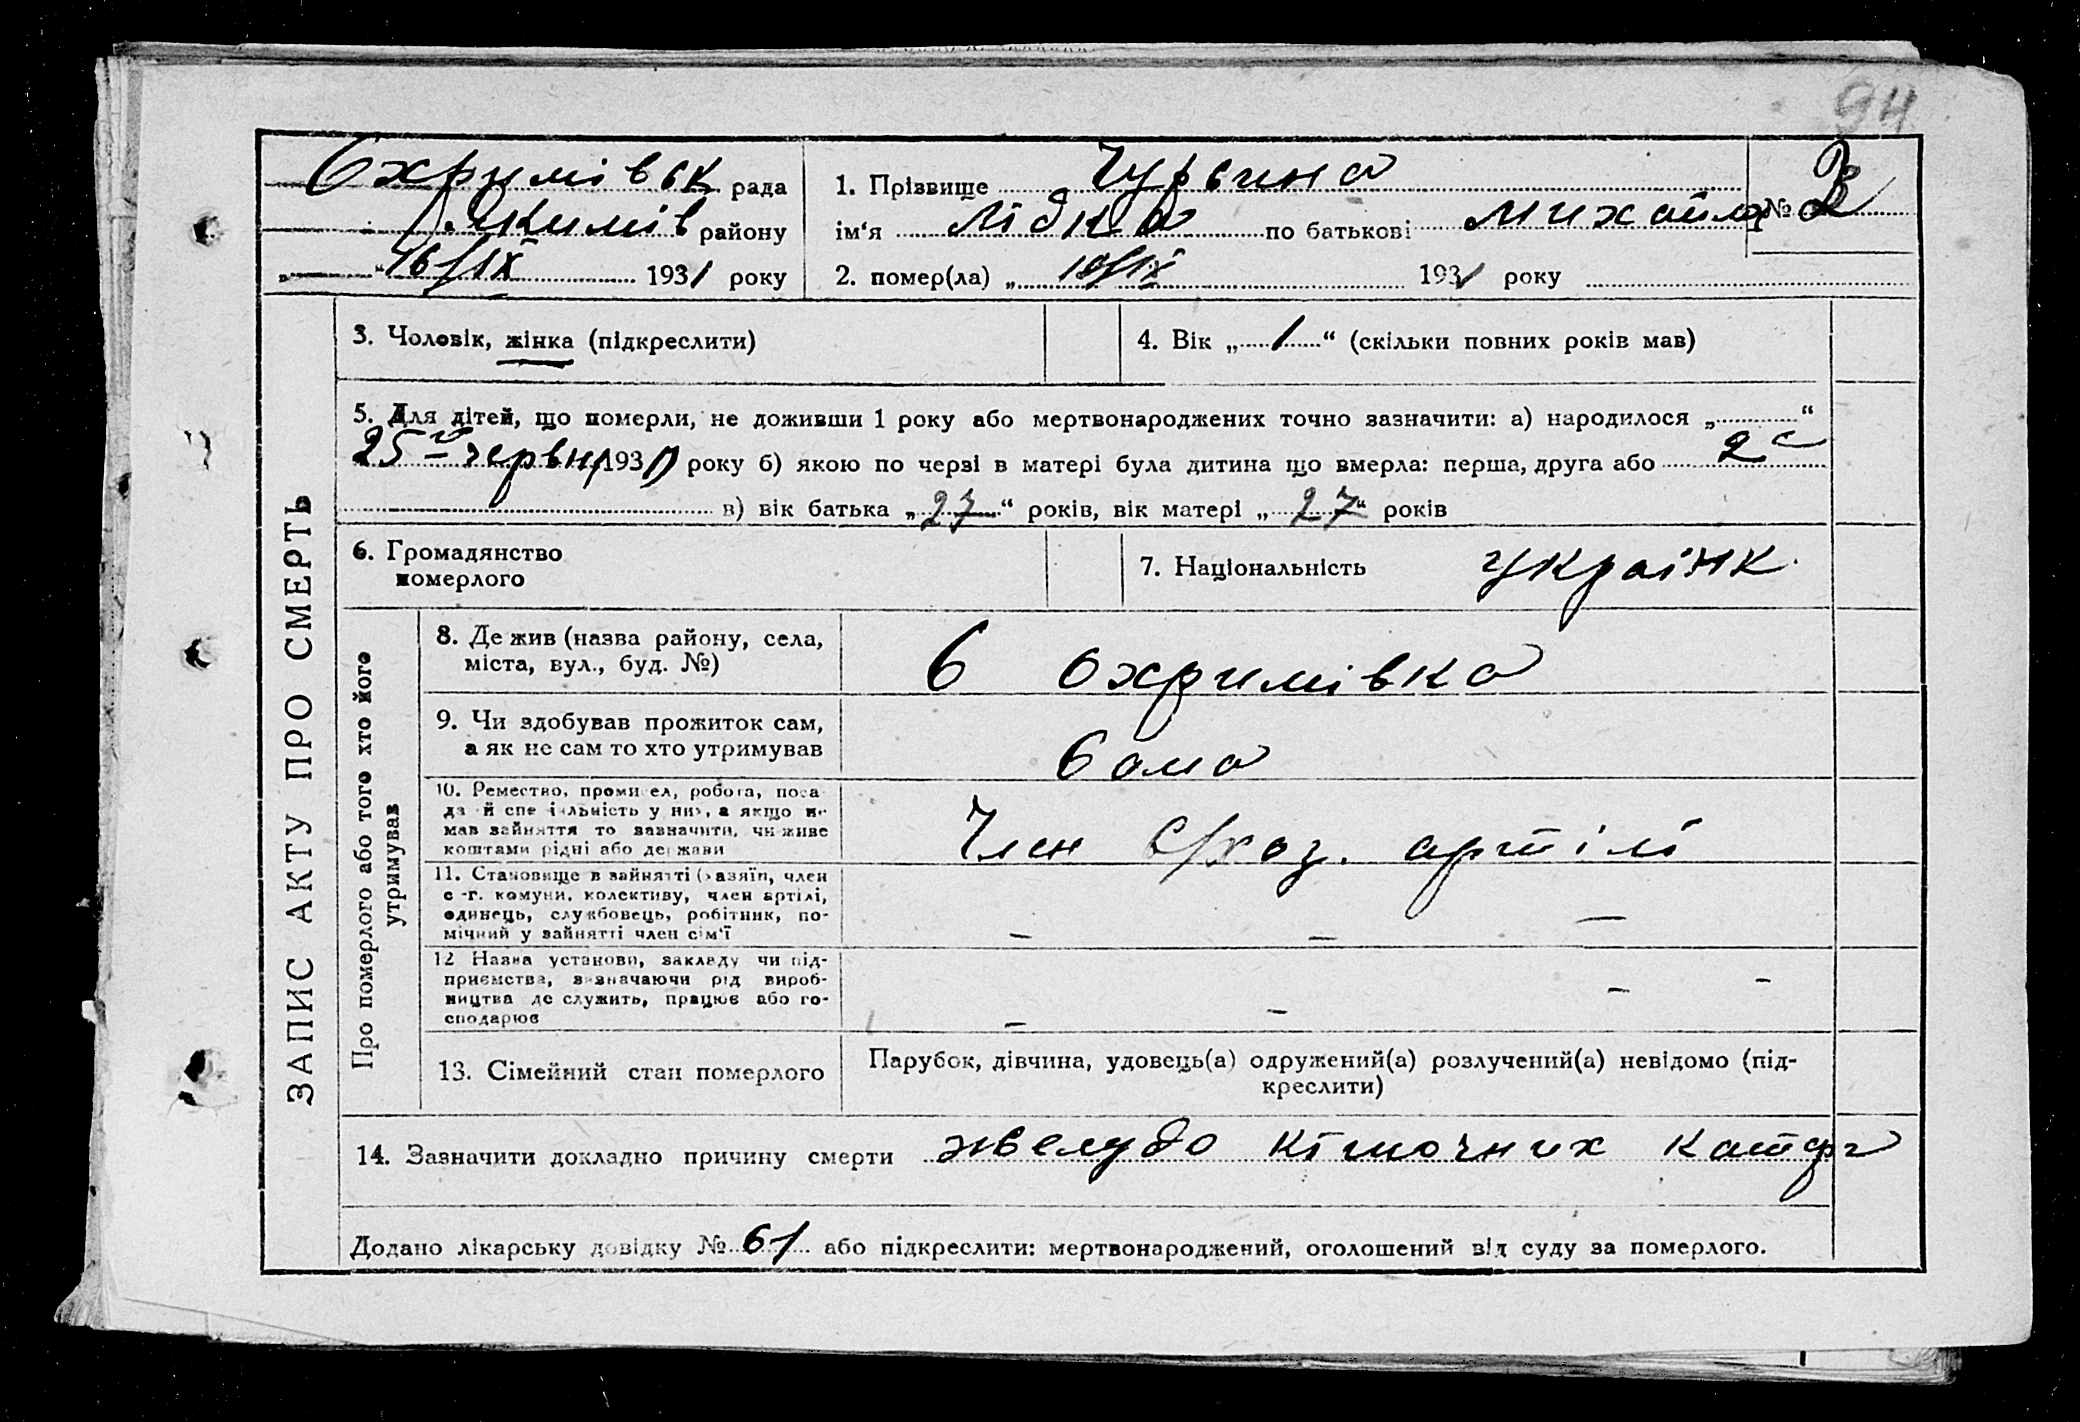 94
Охримівськ рада
Якимів району
„ “ 16/IX 1931 року
1. Прізвище Чурсина № 2
ім'я Лідка по батькові Михайл
2. помер(ла) „ 10/IX 1931 року
ЗАПИС АКТУ ПРО СМЕРТЬ
3. Чоловік, жінка (підкреслити)
4. Вік „ 1 “ (скільки повних років мав)
5. Для дітей, що померли, не доживши 1 року або мертвонароджених точно зазначити: а) народилося „ “
25 червня 1930 року б) якою по черзі в матері була дитина що вмерла: перша, друга або 2
в) вік батька „ 27 “ років, вік матері „ 27 “ років
6. Громадянство
померлого
7. Національність україн к.
Про померлого або того хто його
утримував
8. Де жив (назва району, села,
міста, вул., буд. №)
с Охримівка
9. Чи здобував прожиток сам,
а як не сам то хто утримував
Сама
10. Ремество, промисел, робота, поса-
да й спеціяльність у них, а якщо не
мав зайняття то зазначити, чи живе
коштами рідні або держави
Член с/хоз. артілі
11. Становище в зайнятті (хазяїн, член
с.-г. комуни, колективу, член артілі,
одинець, службовець, робітник, по-
мічний у зайнятті член сім'ї
– – –
12 Назва установи, закладу чи під-
приємства, визначаючи рід вироб-
ництва де служить, працює або го-
сподарює
– – – –
13. Сімейний стан померлого
Парубок, дівчина, удовець(а) одружений(а) розлучений(а) невідомо (під-
креслити)
14. Зазначити докладно причину смерти желудо кішочних катар
Додано лікарську довідку № 61 або підкреслити: мертвонароджений, оголошений від суду за померлого.